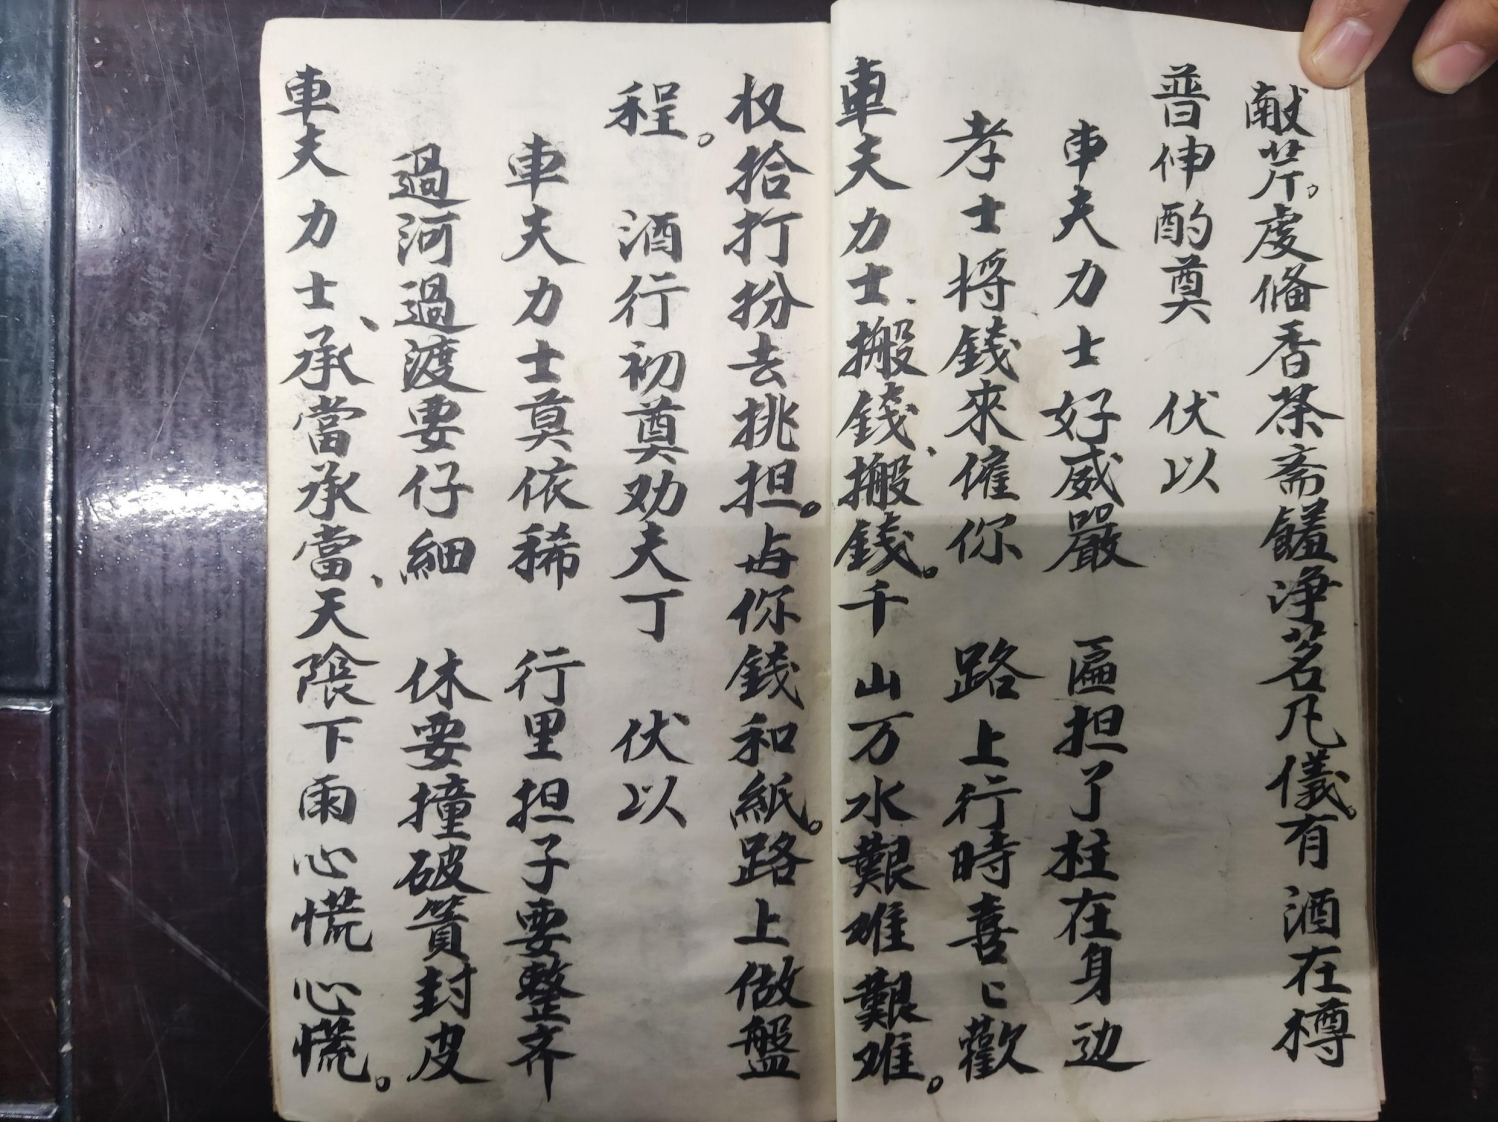 献芹。虔俻香茶斋饈净茗凡儀。有酒在樽
普伸酌奠　伏以
車夫力士好威嚴　匾担了柱在身边
孝士将錢來催你　路上行時喜〻歡
車夫力士、搬錢、搬錢。千山万水艱难艱难。
权拾打扮去挑担。与你錢和紙。路上做盤
程。　酒行初奠劝夫丁　伏以
車夫力士莫依稀　行里担子要整齐
過河過渡要仔細　休要撞破簣封皮
車夫力士、承當承當、天隂下雨心慌心慌。